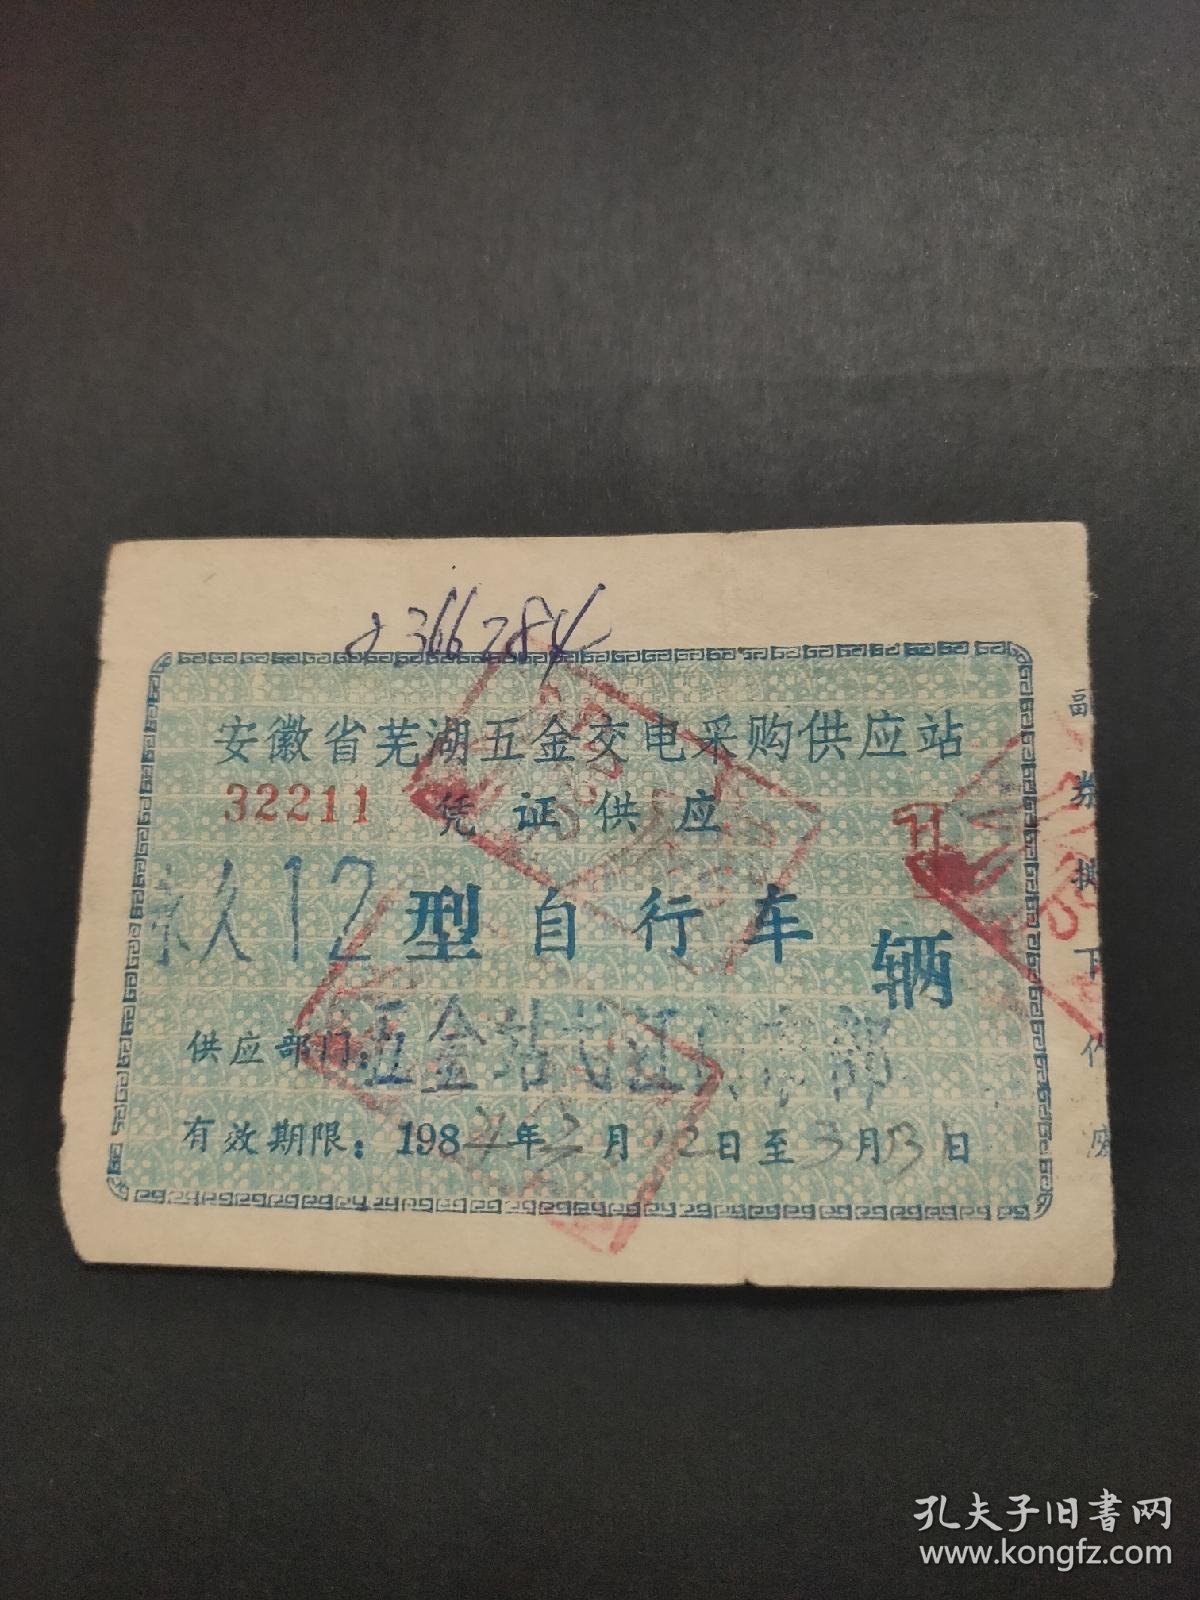 安徽省芜湖五金交电采购供应站
32211 凭证供应
永久12型自行车 辆
供应部门:五金站
有效期限:1984年3月12日至3月13日
副券撕下作废
孔夫子旧书网
www.kongfz.com